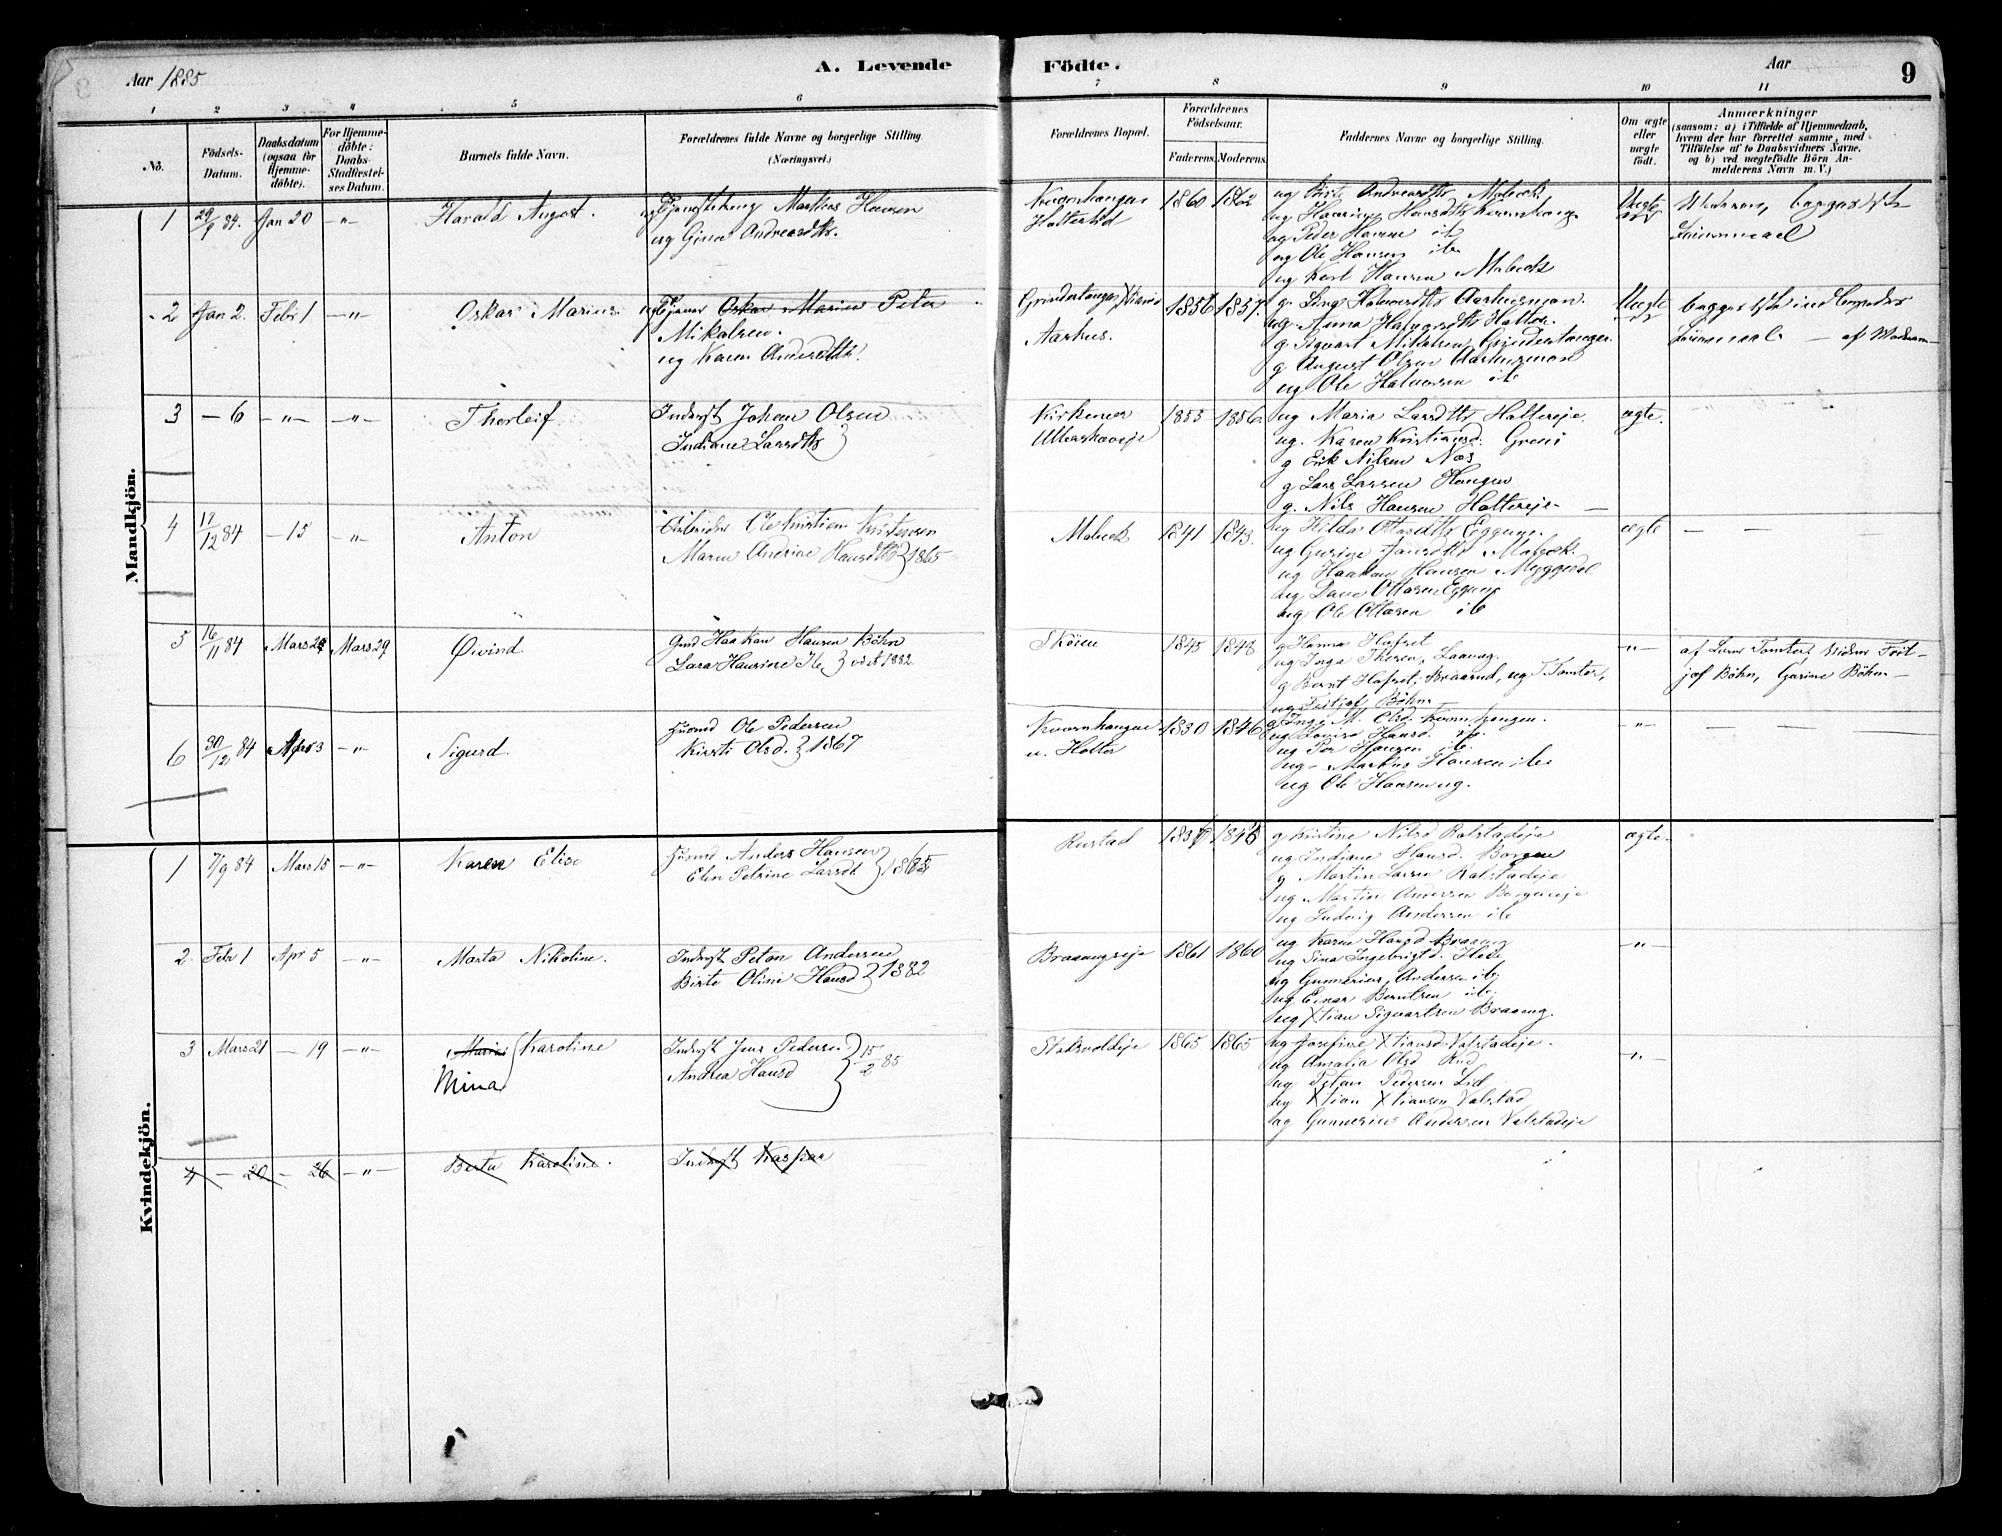 Aar 1885
A. Levende
Födte.
Aar
9
1 2 3 4 5 6 7 8 9 10 11
No.
Födsels-
Datum.
Daabsdatum
(ogsaa for
Hjemme-
döbte).
For Hjemme-
döbte:
Daabs-
Stadfæstel-
ses Datum.
Barnets fulde Navn.
Forældrenes fulde Navne og borgerlige Stilling.
(Næringsvei.)
Forældrenes Bopæl.
Forældrenes
Födselsaar.
Faderens. Moderens.
Faddernes Navne og borgerlige Stilling.
Om ægte
eller
uægte
födt.
Anmærkninger
(saasom: a) i Tilfælde af Hjemmedaab,
hvem der har forrettet samme, med
Tilföielse af to Daabsvidners Navne.
og b) ved uægtefödte Börn An-
melderens Navn m. V.)
Mandkjön.
1 29/9 84. Jan 20 -"- Harald August.
ug Tjenestekarl Markus Hansen
ug Gina Andreasdtr.
Kvernhangen
Holterstad
1860 1862
ug Birte Andreasdtr Mobeck
ug Hansine Hansdtr Kvernhange
ug Peder Hansen ib
ug Ole Hansen ib
ug Karl Hansen Mobeck
Uægte
Moderen, begges 1ste
Leiermaal
2 Jan 2. Febr 1 -"- Oskar Marius
ug Tjener Oskar Marius Peter
Mikalsen.
ug Karen Andersdtr.
Grindertangen
Aarhus.
1856 1857.
g. Lina Halvorsdtr Aarhusmoen.
ug Anna Halvorsdtr Holter.
g. Sigvart Mikalsen Grindertangen
g August Olsen Aarhusmoen
ug Ole Halvorsen ib
Uægte
begges 1ste
Leiermaal - af Moderen -
3 - 6 -"- -"- Thorleif
Inderst Johan Olsen
Indiane Larsdtr
Kirkener
Ullershaveje
1853 1856.
ug Maria Larsdtr Holtereje.
ug. Karen Kristiansd. Greni
g Erik Nilsen Næs
g Lars Larsen Haugen
g. Nils Hansen Holtereje -
ægte.
4 18/12 84 - 15 -"- Anton
Arbeider Ole Kristian Kristensen
Maren Andrine Hansdtr } 1865
Mobeck
1841 1843.
ug Hilda Ottosdtr Eggum.
ug Gusine Jansdtr Mobek.
ug Haakon Hansen Myggedal
ug Ottosen
ug Ole Ottosen ib
ægte - -
5 16/11 84 Mars 29 Mars 29 Øivind
Gmd Haakan Hansen Böhn
Lara Hansine } viet 1882.
Sköien
1845 1848
g Hanna Hafset
ug Inga Thesen, Laavag.
g Bernt Hafset, Braarud, ug T. Tomter,
ug Fritjof Böhn -
-"-
af Lars Tomter, Vidner Frit-
jof Böhn, Gusine Böhm -
6 30/12 84 Apr 3 -"- Sigurd
Husmd Ole Pedersen
Kirsti Olsd. } 1867
Kvernhangen
u. Holter
1830 1846
g Inge M. Olsd. Kvernhangen.
ug Lovise Hansd. ib.
ug Per Hansen ib.
ug - Markus Hansen ibi
ug Ole Hansen ug.
-"- - -
Kvindekjön.
1 7/9 84 Mars 15 -"- Karen Elise
Husmd Anders Hansen
Elen Petrine Larsdt } 1865
Rustad
1837 1845
g Kristine Nilsd Ralstadeje
ug Indiane Hansd. Borgen
g Martin Larsen Ralstadeje
ug Martin Andersen Borgeneje
ug Ludvig Andersen ib
ægte
2. Febr 1 Apr 5 -"- Marta Nikoline.
Inderst Peton Andersen
Birte Oline Hansd } 1882
Braaengseje
1861 1860
ug Karen Hansd Braaeng
ug Sina Ingebrigtd.
ug Gunnerius Andersen ib.
ug Einar Berntsen ib.
ug Xtian Sigvartsen Braaeng.
-"-
3 Mars 21 - 19 -"- Marie Karoline
Mina
Inderst Jens Pedersen
Andrea Hansd } 15/2 85
Staksvoldeje
1865 1865
ug Josefine Xtiansd Valstadeje.
ug Amalia Olsd Rud
ug Peton Pedersen Lid
ug Xtian Xtiansen Valstad
ug Gunnerius Andersen Valstadeje
-"-
4 - 20 - 26 -"- Berta Karoline.
Inderst Kaspar